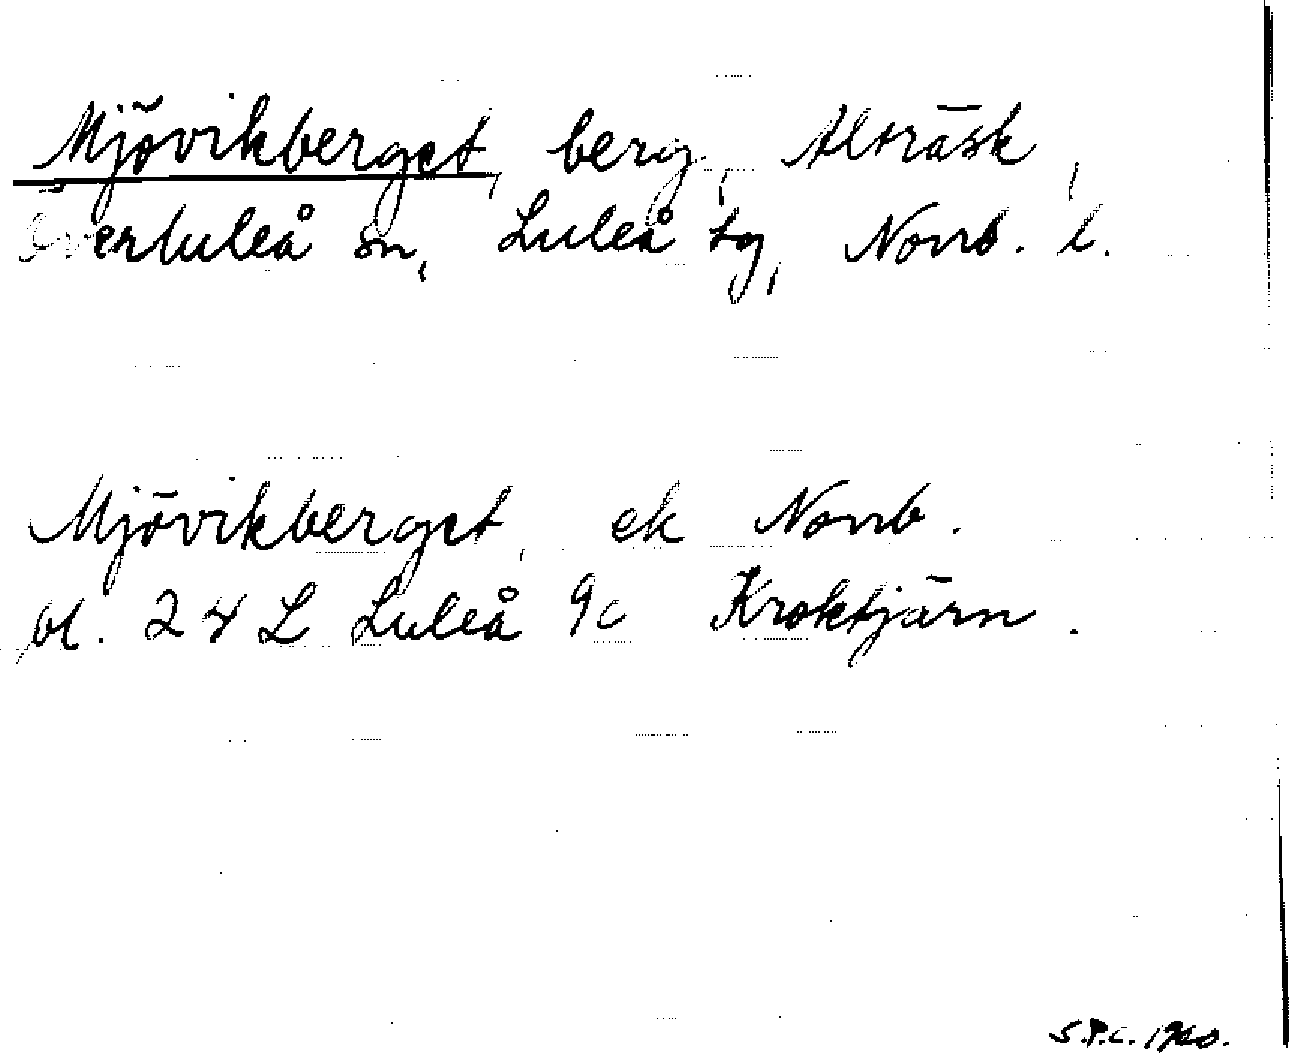 Mjövikberget, berg, Alträsk,
Överluleå sn, Luleå tg, Norrb. l.
Mjövikberget, ek Norrb.
bl. 24 L Luleå 9c Kroktjärn.
S.P.C. 1960.